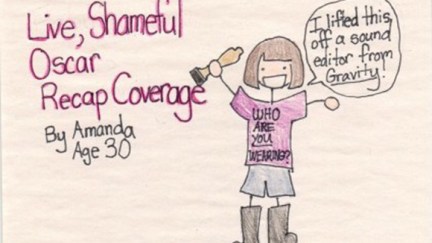 Live, Shameful
Oscar
Recap Coverage
By Amanda
Age 30
I lifted this
off a sound
editor from
Gravity!
WHO
ARE
YOU
WEARING?